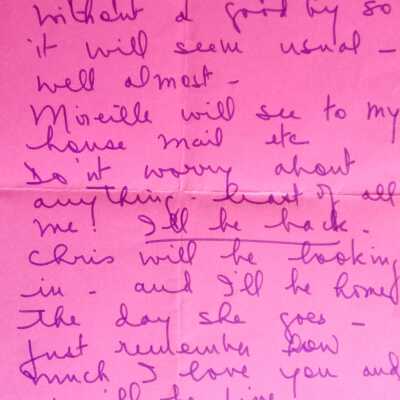 without a good by so
it will seem usual -
well almost -
Mireille will see to my
house mail etc
Do'nt worry about
anything - least of all
me! I'll be back.
Chris will be looking
in - and I'll be home
the day she goes -
Just remember how
much I love you and